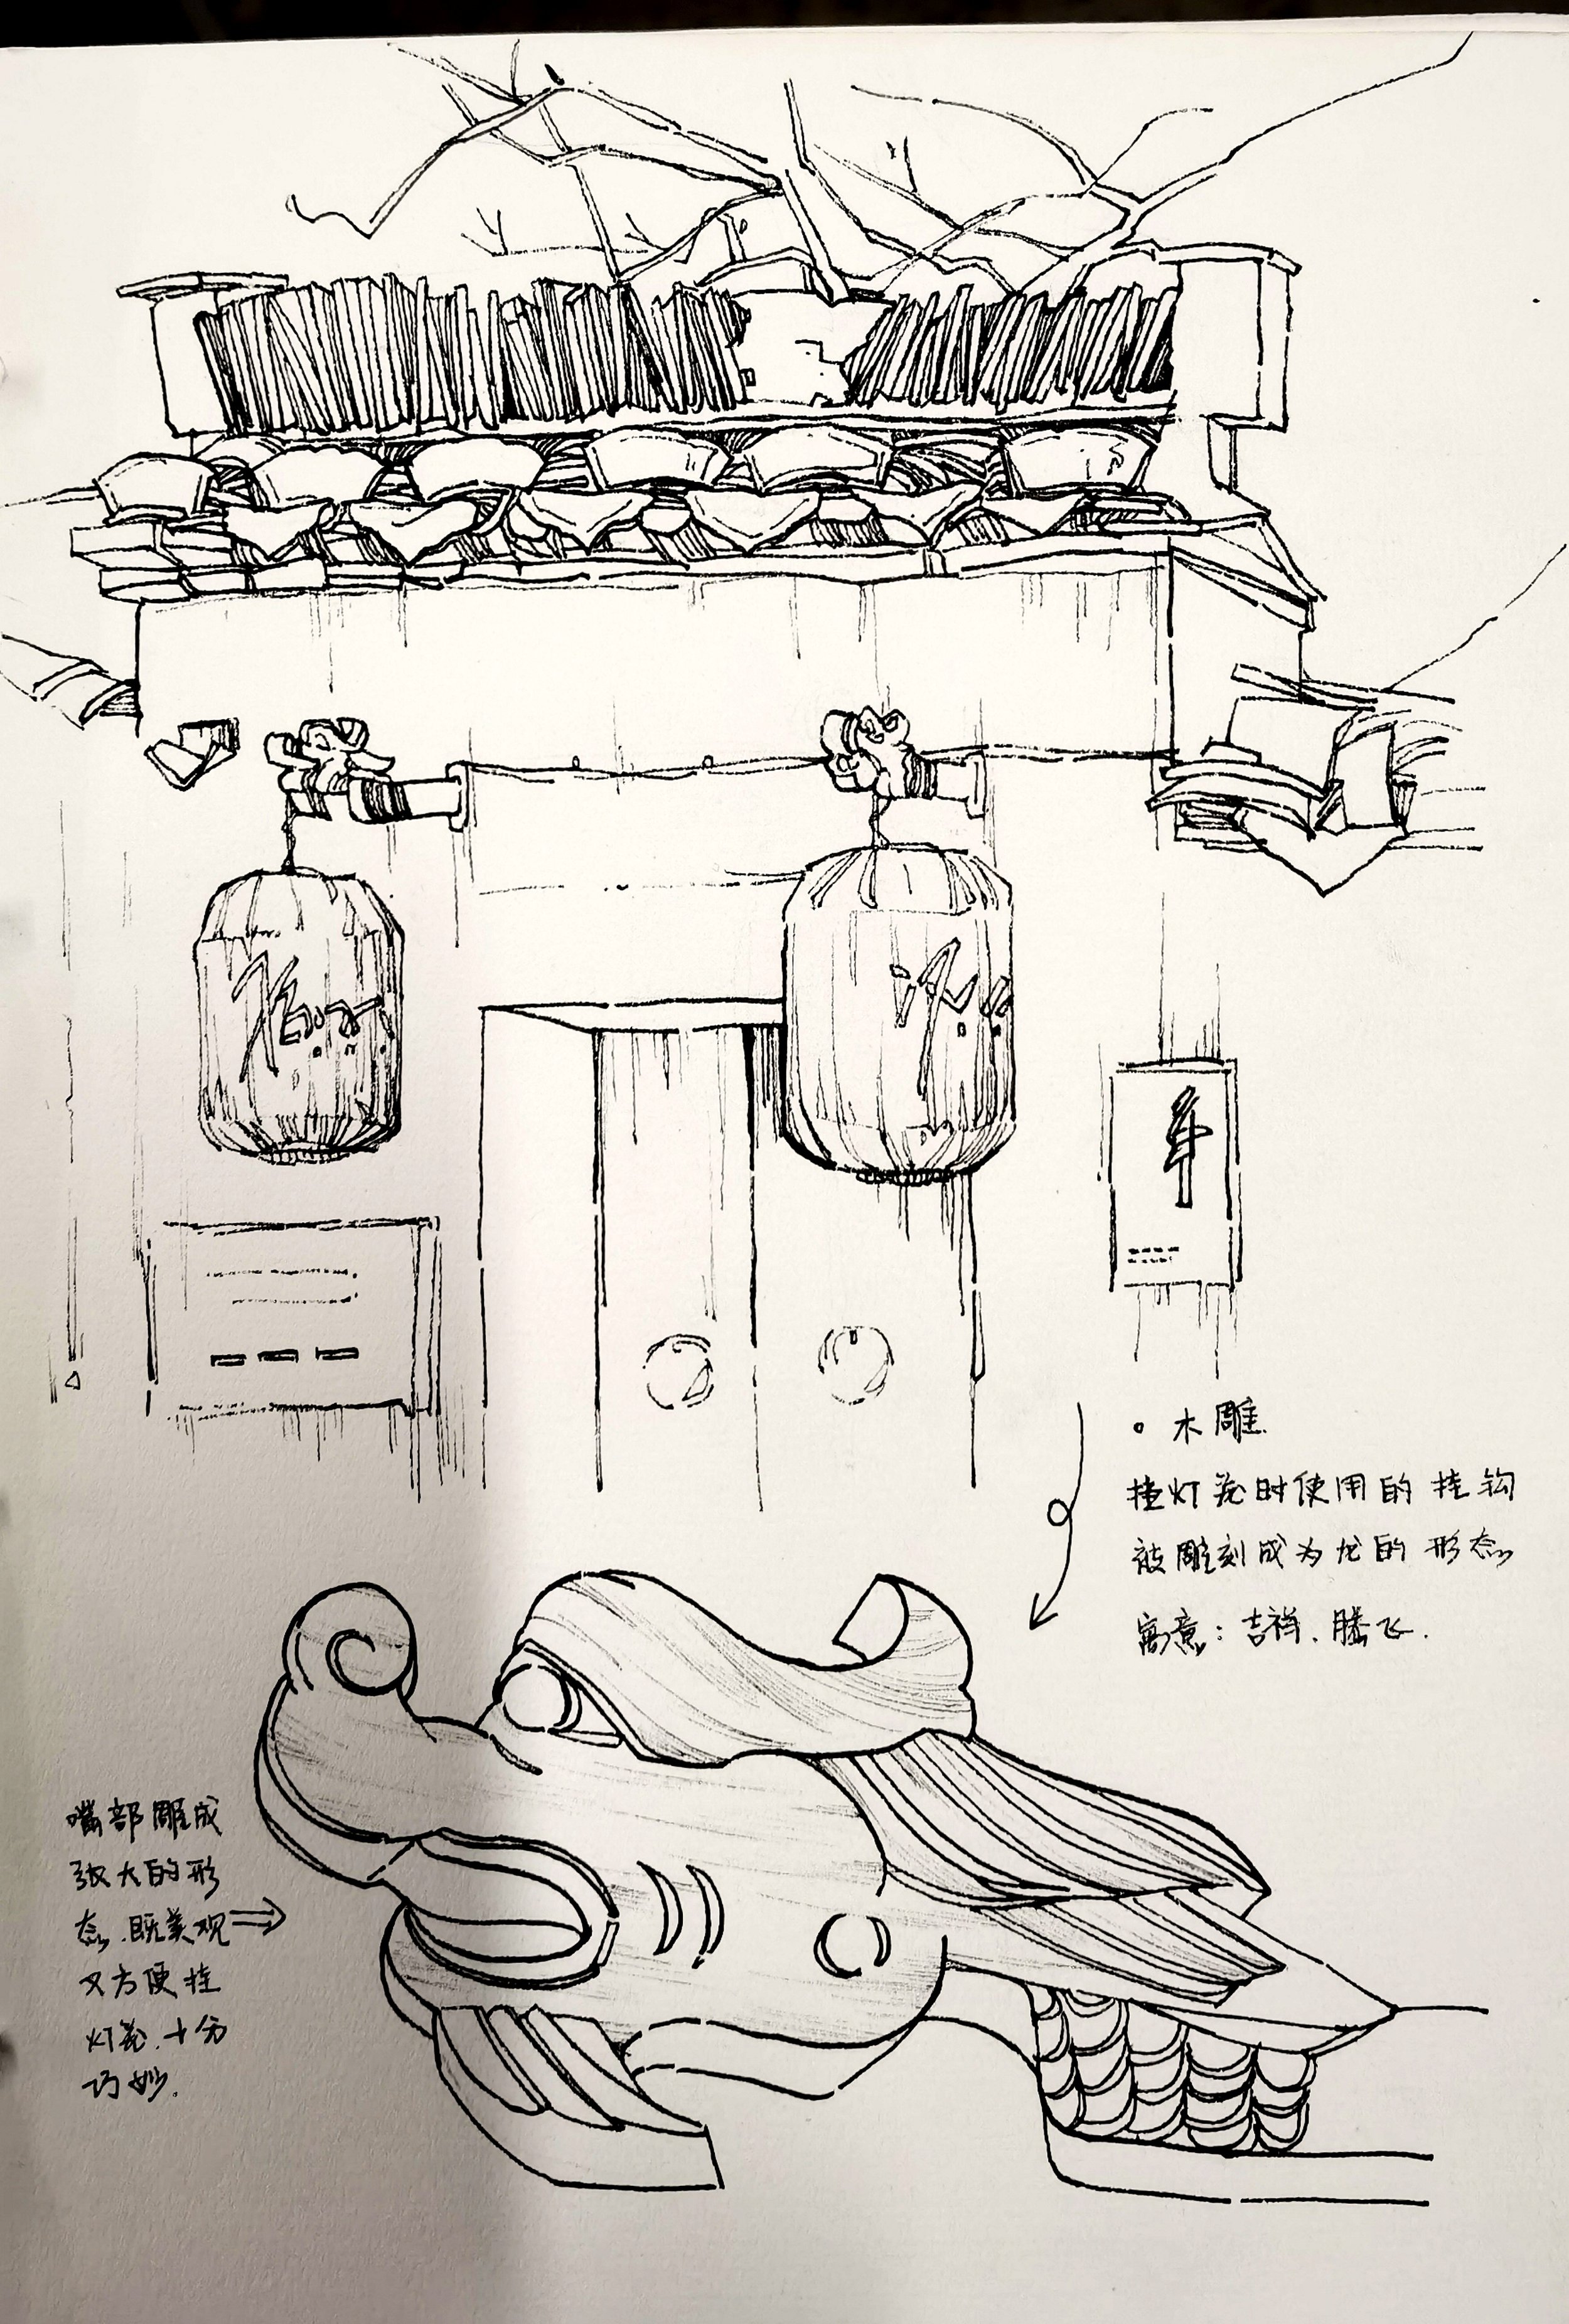 木雕.
挂灯笼时使用的挂钩
被雕刻成为龙的形态
寓意：吉祥、腾飞.
嘴部雕成
张大的形
态.既美观
又方便挂
灯笼.十分
巧妙.